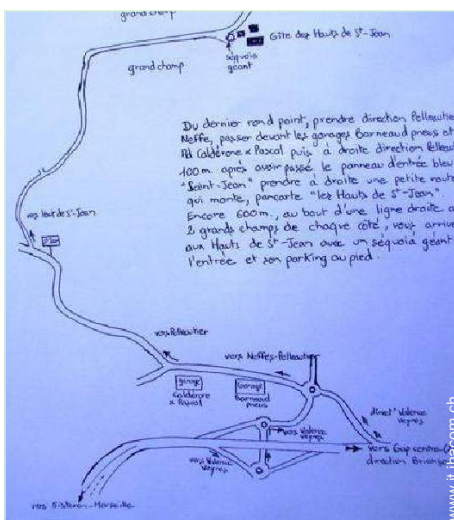 grand champ
Gîte des Hauts de St-Jean
séquoia
géant
grand champ
Du dernier rond point, prendre direction Pelleautier
Neffe, passer devant les garages Barneaud pneus et
Calderone x Pascal puis à droite direction Pelleau
100m après avoir passé le panneau d'entrée bleu
"Saint-Jean" prendre à droite une petite route
qui monte, pancarte "les Hauts de St-Jean".
Encore 600m, au bout d'une ligne droite a
2 grands champs de chaque côté, vous arrive
aux Hauts de St-Jean avec un séquoia géant
l'entrée et son parking au pied.
vers Hauts de St-Jean
St Jean
vers Pelleautier
vers Neffes-Pelleautier
garage
Calderone
x Pascal
garage
Barneaud
pneus
direct° Valence
Veynes
vers Valence
Veynes
vers Valence
Veynes
vers Gap centre
direction Brianço
vers Sisteron-Marseille
www.it.ihacom.ch